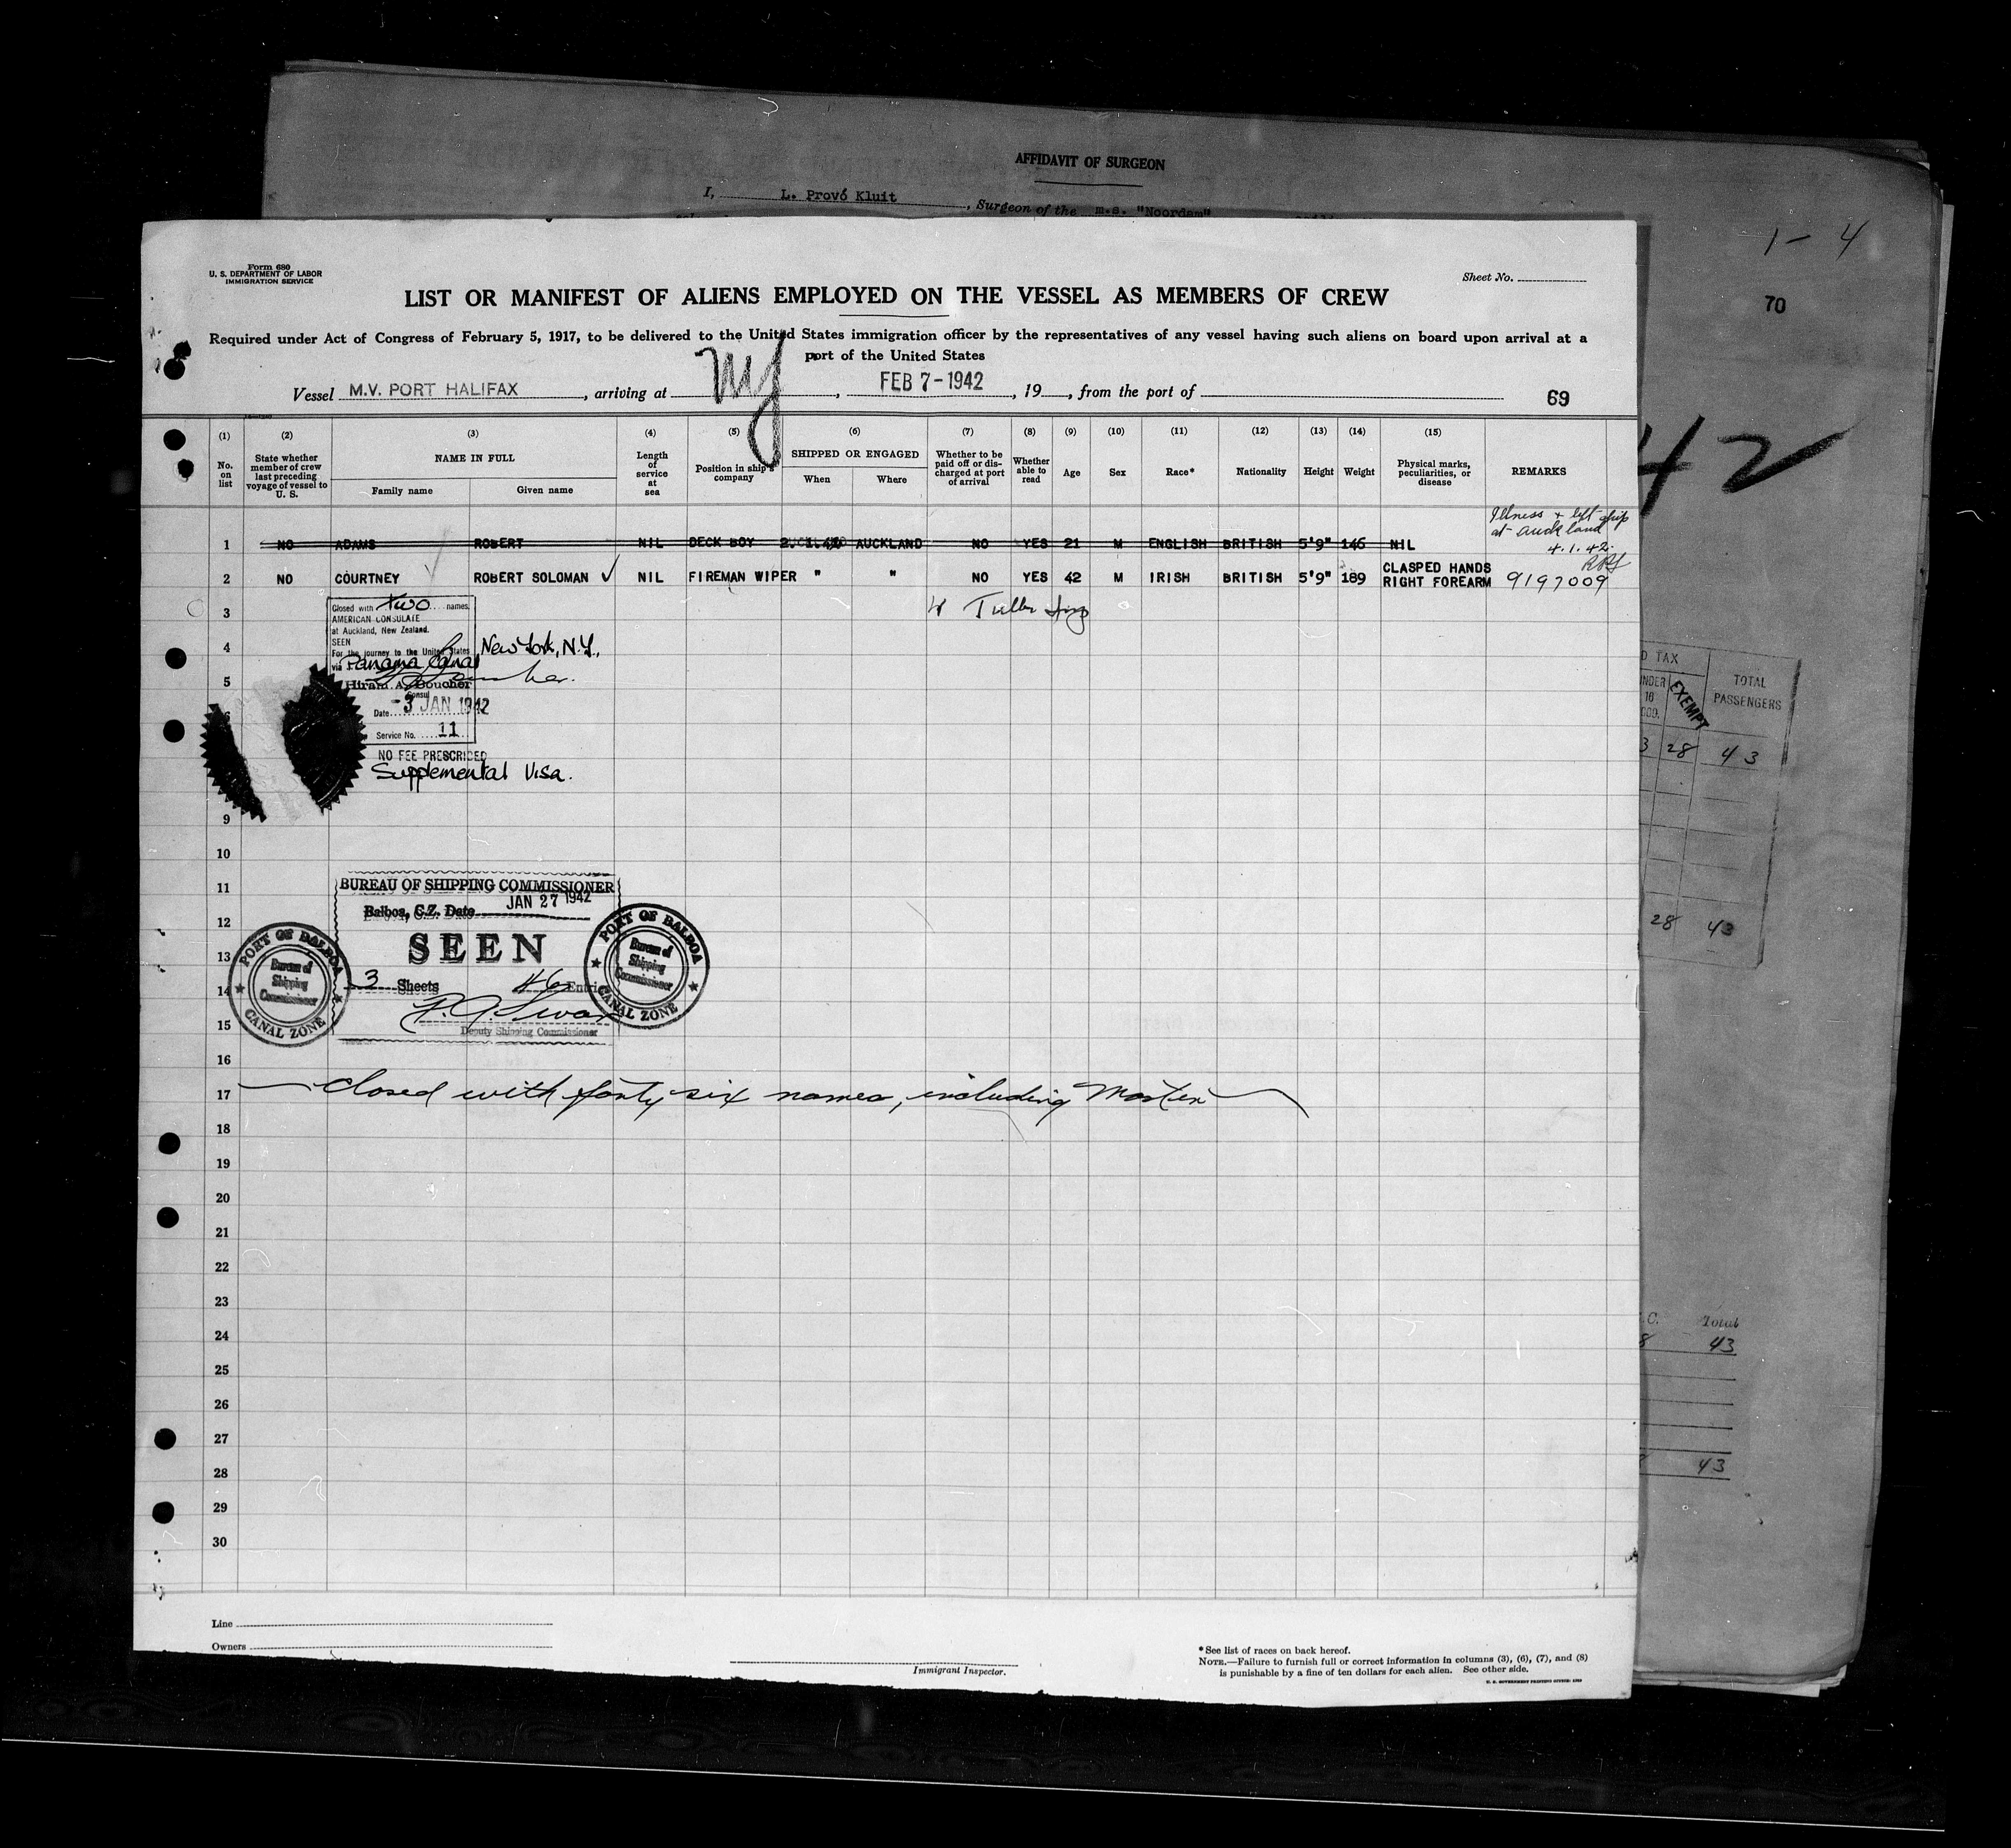 AFFIDAVIT OF SURGEON
I, L. Provó Kluit, Surgeon of the m.s. "Noordam"
1 - 4
70
42
Form 680
U. S. DEPARTMENT OF LABOR
IMMIGRATION SERVICE
Sheet No.
LIST OR MANIFEST OF ALIENS EMPLOYED ON THE VESSEL AS MEMBERS OF CREW
Required under Act of Congress of February 5, 1917, to be delivered to the United States immigration officer by the representatives of any vessel having such aliens on board upon arrival at a
port of the United States
Vessel M.V. PORT HALIFAX, arriving at NY, FEB 7-1942, 19, from the port of
69
(1) (2) (3) (4) (5) (6) (7) (8) (9) (10) (11) (12) (13) (14) (15)
No. on list
State whether member of crew last preceding voyage of vessel to U. S.
NAME IN FULL
Family name
Given name
Length of service at sea
Position in ship's company
SHIPPED OR ENGAGED
When
Where
Whether to be paid off or discharged at port of arrival
Whether able to read
Age
Sex
Race*
Nationality
Height
Weight
Physical marks, peculiarities, or disease
REMARKS
Illness + left ship
at Auckland
4.1.42.
1 NO ADAMS ROBERT NIL DECK BOY AUCKLAND NO YES 21 M ENGLISH BRITISH 5'9" 146 NIL
2 NO COURTNEY ROBERT SOLOMAN NIL FIREMAN WIPER " " NO YES 42 M IRISH BRITISH 5'9" 189 CLASPED HANDS RIGHT FOREARM 9197009
3
4
5
9
10
11
12
13
14
15
16
17
18
19
20
21
22
23
24
25
26
27
28
29
30
Closed with two names
AMERICAN CONSULATE
at Auckland, New Zealand.
SEEN
For the journey to the United States New York, N.Y.,
via Panama Canal
Hiram A. Boucher
Consul
Date -3 JAN 1942
Service No. 11
NO FEE PRESCRIBED
Supplemental Visa.
BUREAU OF SHIPPING COMMISSIONER
Balboa, C.Z. Date JAN 27 1942
SEEN
3 Sheets 46 Entri
Deputy Shipping Commissioner
PORT OF BALBOA
Bureau of
Shipping
Commissioner
CANAL ZONE
PORT OF BALBOA
Bureau of
Shipping
Commissioner
CANAL ZONE
closed with forty six names, including Master
Line
Owners
Immigrant Inspector.
*See list of races on back hereof.
NOTE.—Failure to furnish full or correct information in columns (3), (6), (7), and (8)
is punishable by a fine of ten dollars for each alien. See other side.
D TAX
EXEMPT
TOTAL
PASSENGERS
3 28 43
28 43
Total
43
43